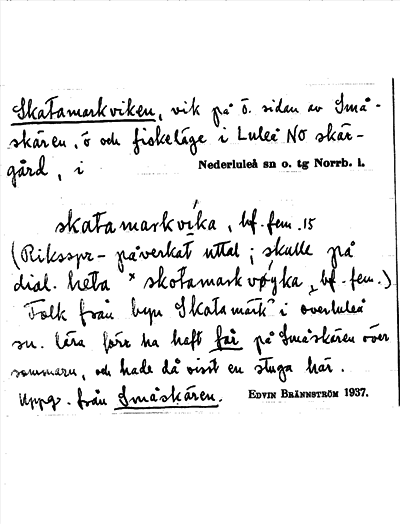 Skatamarkviken, vik på ö. sidan av Små-
skären, ö och fiskeläge i Luleå NO skär-
gård, i Nederluleå sn o. tg Norrb. l.
skatamarkvíka, bf. fem. 15
(Riksspr-påverkat uttal; skulle på
dial. heta × skotamarkvøyka, bf. fem.)
Folk från byn Skatamark i överluleå
sn. lära förr ha haft får på Småskären över
sommarn, och hade då visst en stuga här.
Uppg. från Småskären. Edvin Brännström 1937.